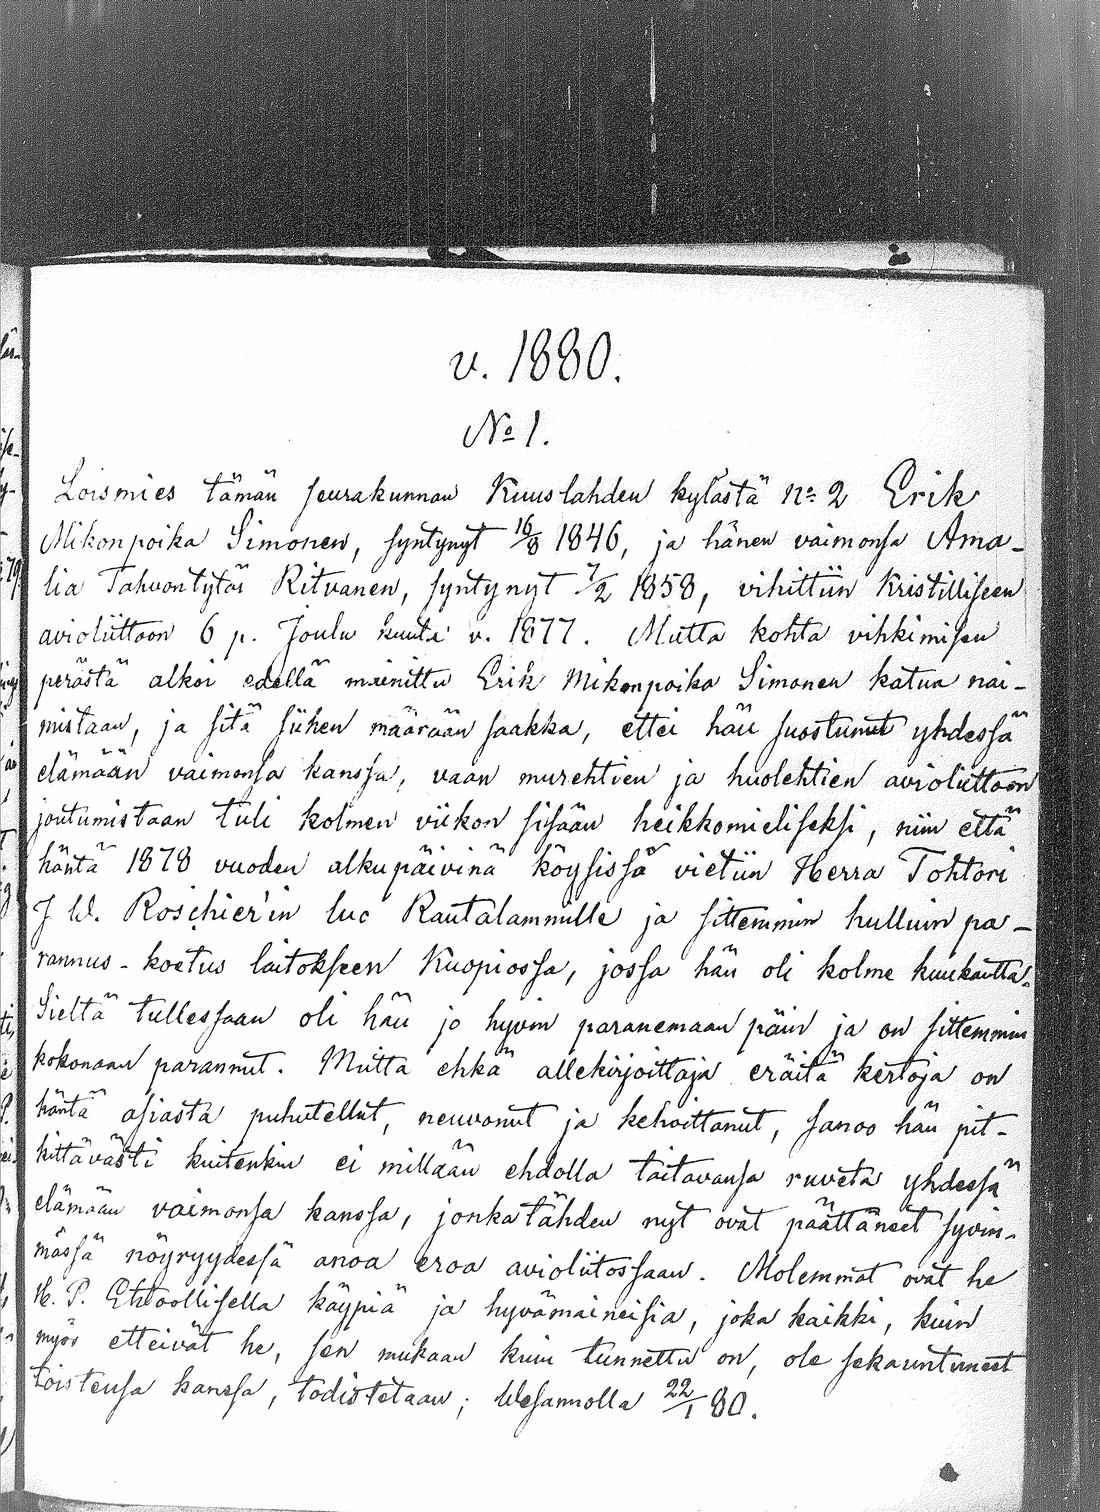 v. 1880.
№ 1.
Loismies tämän seurakunnan Kuuslahden kylästä no 2 Erik
Mikonpoika Simonen, syntynyt 16/8 1846, ja hänen vaimonsa Ama-
lia Tahvontytär Ritvanen, syntynyt 7/2 1858, vihittiin Kristilliseen
avioliittoon 6 p. Joulu kuuta v. 1877. Mutta kohta vihkimisen
perästä alkoi edellä mainittu Erik Mikonpoika Simonen katua nai-
mistaan, ja sitä siihen määrään saakka, ettei hän suostunut yhdessä
elämään vaimonsa kanssa, vaan murehtien ja huolehtien avioliittoon
joutumistaan tuli kolmen viikon sisään heikkomieliseksi, niin että
häntä 1878 vuoden alkupäivinä köysissä vietiin Herra Tohtori
J. W. Roschier'in luo Rautalammille ja sittemmin hulluin pa-
rannus-koetus laitokseen Kuopiossa, jossa hän oli kolme kuukautta.
Sieltä tullessaan oli hän jo hyvin paranemaan päin ja on sittemmin
kokonaan parannut. Mutta ehkä allekirjoittaja eräitä kertoja on
häntä asiasta puhutellut, neuvonut ja kehoittanut, sanoo hän pit-
kittävästi kuitenkin ei millään ehdolla taitavansa ruveta yhdessä
elämään vaimonsa kanssa, jonka tähden nyt ovat päättäneet syvim-
mässä nöyryydessä anoa eroa avioliitossaan. Molemmat ovat he
H. P. Ehtoollisella käypiä ja hyvämaineisia, joka kaikki, kuin
myös etteivät he, sen mukaan kuin tunnettu on, ole sekauntuneet
toistensa kanssa, todistetaan; Wesannolla 22/1 80.